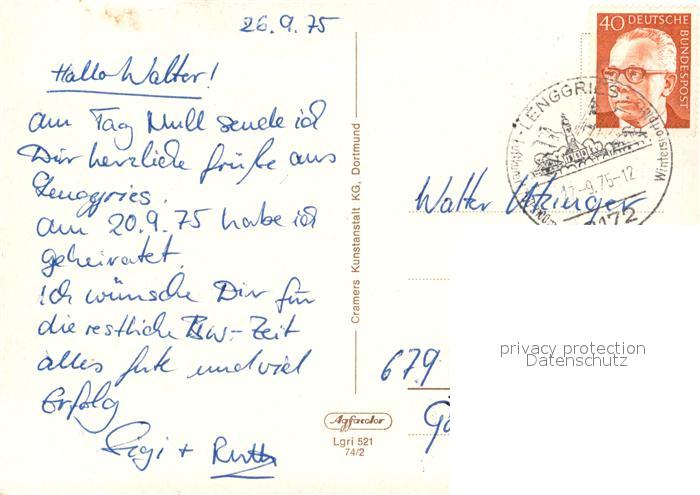 26.9.75
Hallo Walter!
am Tag Null sende ich
Dir herzliche Grüße aus
Lenggries.
am 20.9.75 habe ich
geheiratet.
Ich wünsche Dir für
die restliche BW-Zeit
alles Gute und viel
Erfolg
Sigi + Ruth
Cramers Kunstanstalt KG, Dortmund
Agfacolor
Lgri 521
74/2
40 DEUTSCHE
BUNDESPOST
LENGGRIES
-9.75-12
8172
Walter Utzinger
679
privacy protection
Datenschutz